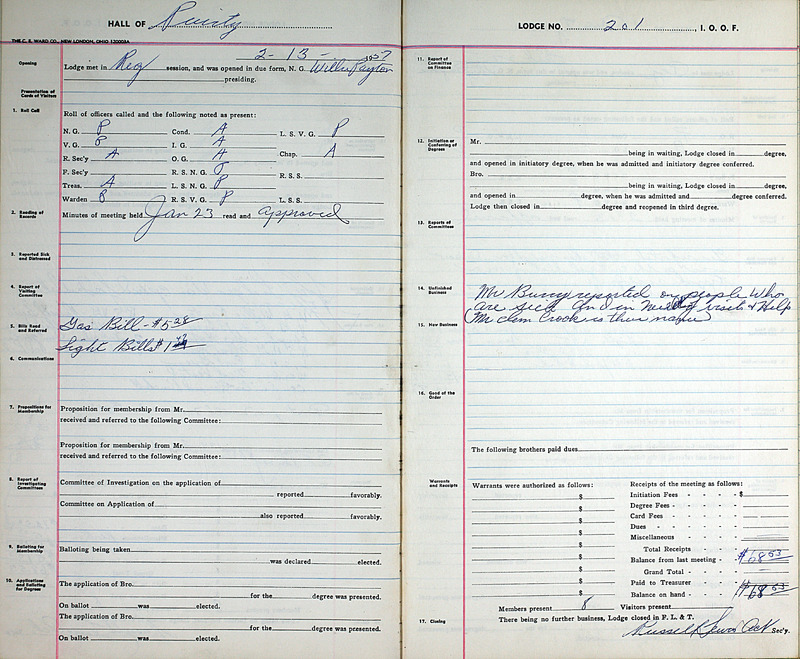 HALL OF
THE C. E. WARD CO., NEW LONDON, OHIO 120003A
2-13-1957
Opening
Lodge met in Reg session, and was opened in due form, N. G. Willie Payton
presiding.
Presentation of Cards of Visitors
1. Roll Call
Roll of officers called and the following noted as present:
N. G. P Cond. A L. S. V. G. P
V. G. P I. G. A
R. Sec'y A O. G. A Chap. A
F. Sec'y R. S. N. G. P R. S. S.
Treas. A L. S. N. G. P
Warden P R. S. V. G. P L. S. S.
2. Reading of Records
Minutes of meeting held Jan 23 read and approved
3. Reported Sick and Distressed
4. Report of Visiting Committee
5. Bills Read and Referred
Gas Bill - $5 28
Light Bills $1
6. Communications
7. Propositions for Membership
Proposition for membership from Mr.
received and referred to the following Committee:
Proposition for membership from Mr.
received and referred to the following Committee:
8. Report of Investigating Committees
Committee of Investigation on the application of
reported favorably.
Committee on Application of
also reported favorably.
9. Balloting for Membership
Balloting being taken
was declared elected.
10. Applications and Balloting for Degrees
The application of Bro.
for the degree was presented.
On ballot was elected.
The application of Bro.
for the degree was presented.
On ballot was elected.
LODGE NO. 201, I. O. O. F.
11. Report of Committee on Finance
12. Initiation or Conferring of Degrees
Mr.
being in waiting, Lodge closed in degree,
and opened in initiatory degree, when he was admitted and initiatory degree conferred.
Bro.
being in waiting, Lodge closed in degree,
and opened in degree, when he was admitted and degree conferred.
Lodge then closed in degree and reopened in third degree.
13. Reports of Committees
14. Unfinished Business
Mr Burry reported on people who
are sick and in Need of visit & Help
15. New Business
Mr Clem Crook is their name
16. Good of the Order
The following brothers paid dues
Warrants and Receipts
Warrants were authorized as follows:
$
$
$
$
$
$
$
$
$
Receipts of the meeting as follows:
Initiation Fees - - - - $
Degree Fees - - - - -
Card Fees - - - - -
Dues - - - - - -
Miscellaneous - - - -
Total Receipts
Balance from last meeting - $68 63
Grand Total - -
Paid to Treasurer - -
Balance on hand - - $68 63
Members present 8 Visitors present
17. Closing
There being no further business, Lodge closed in F. L. & T.
Russell Lewis Act Sec'y.